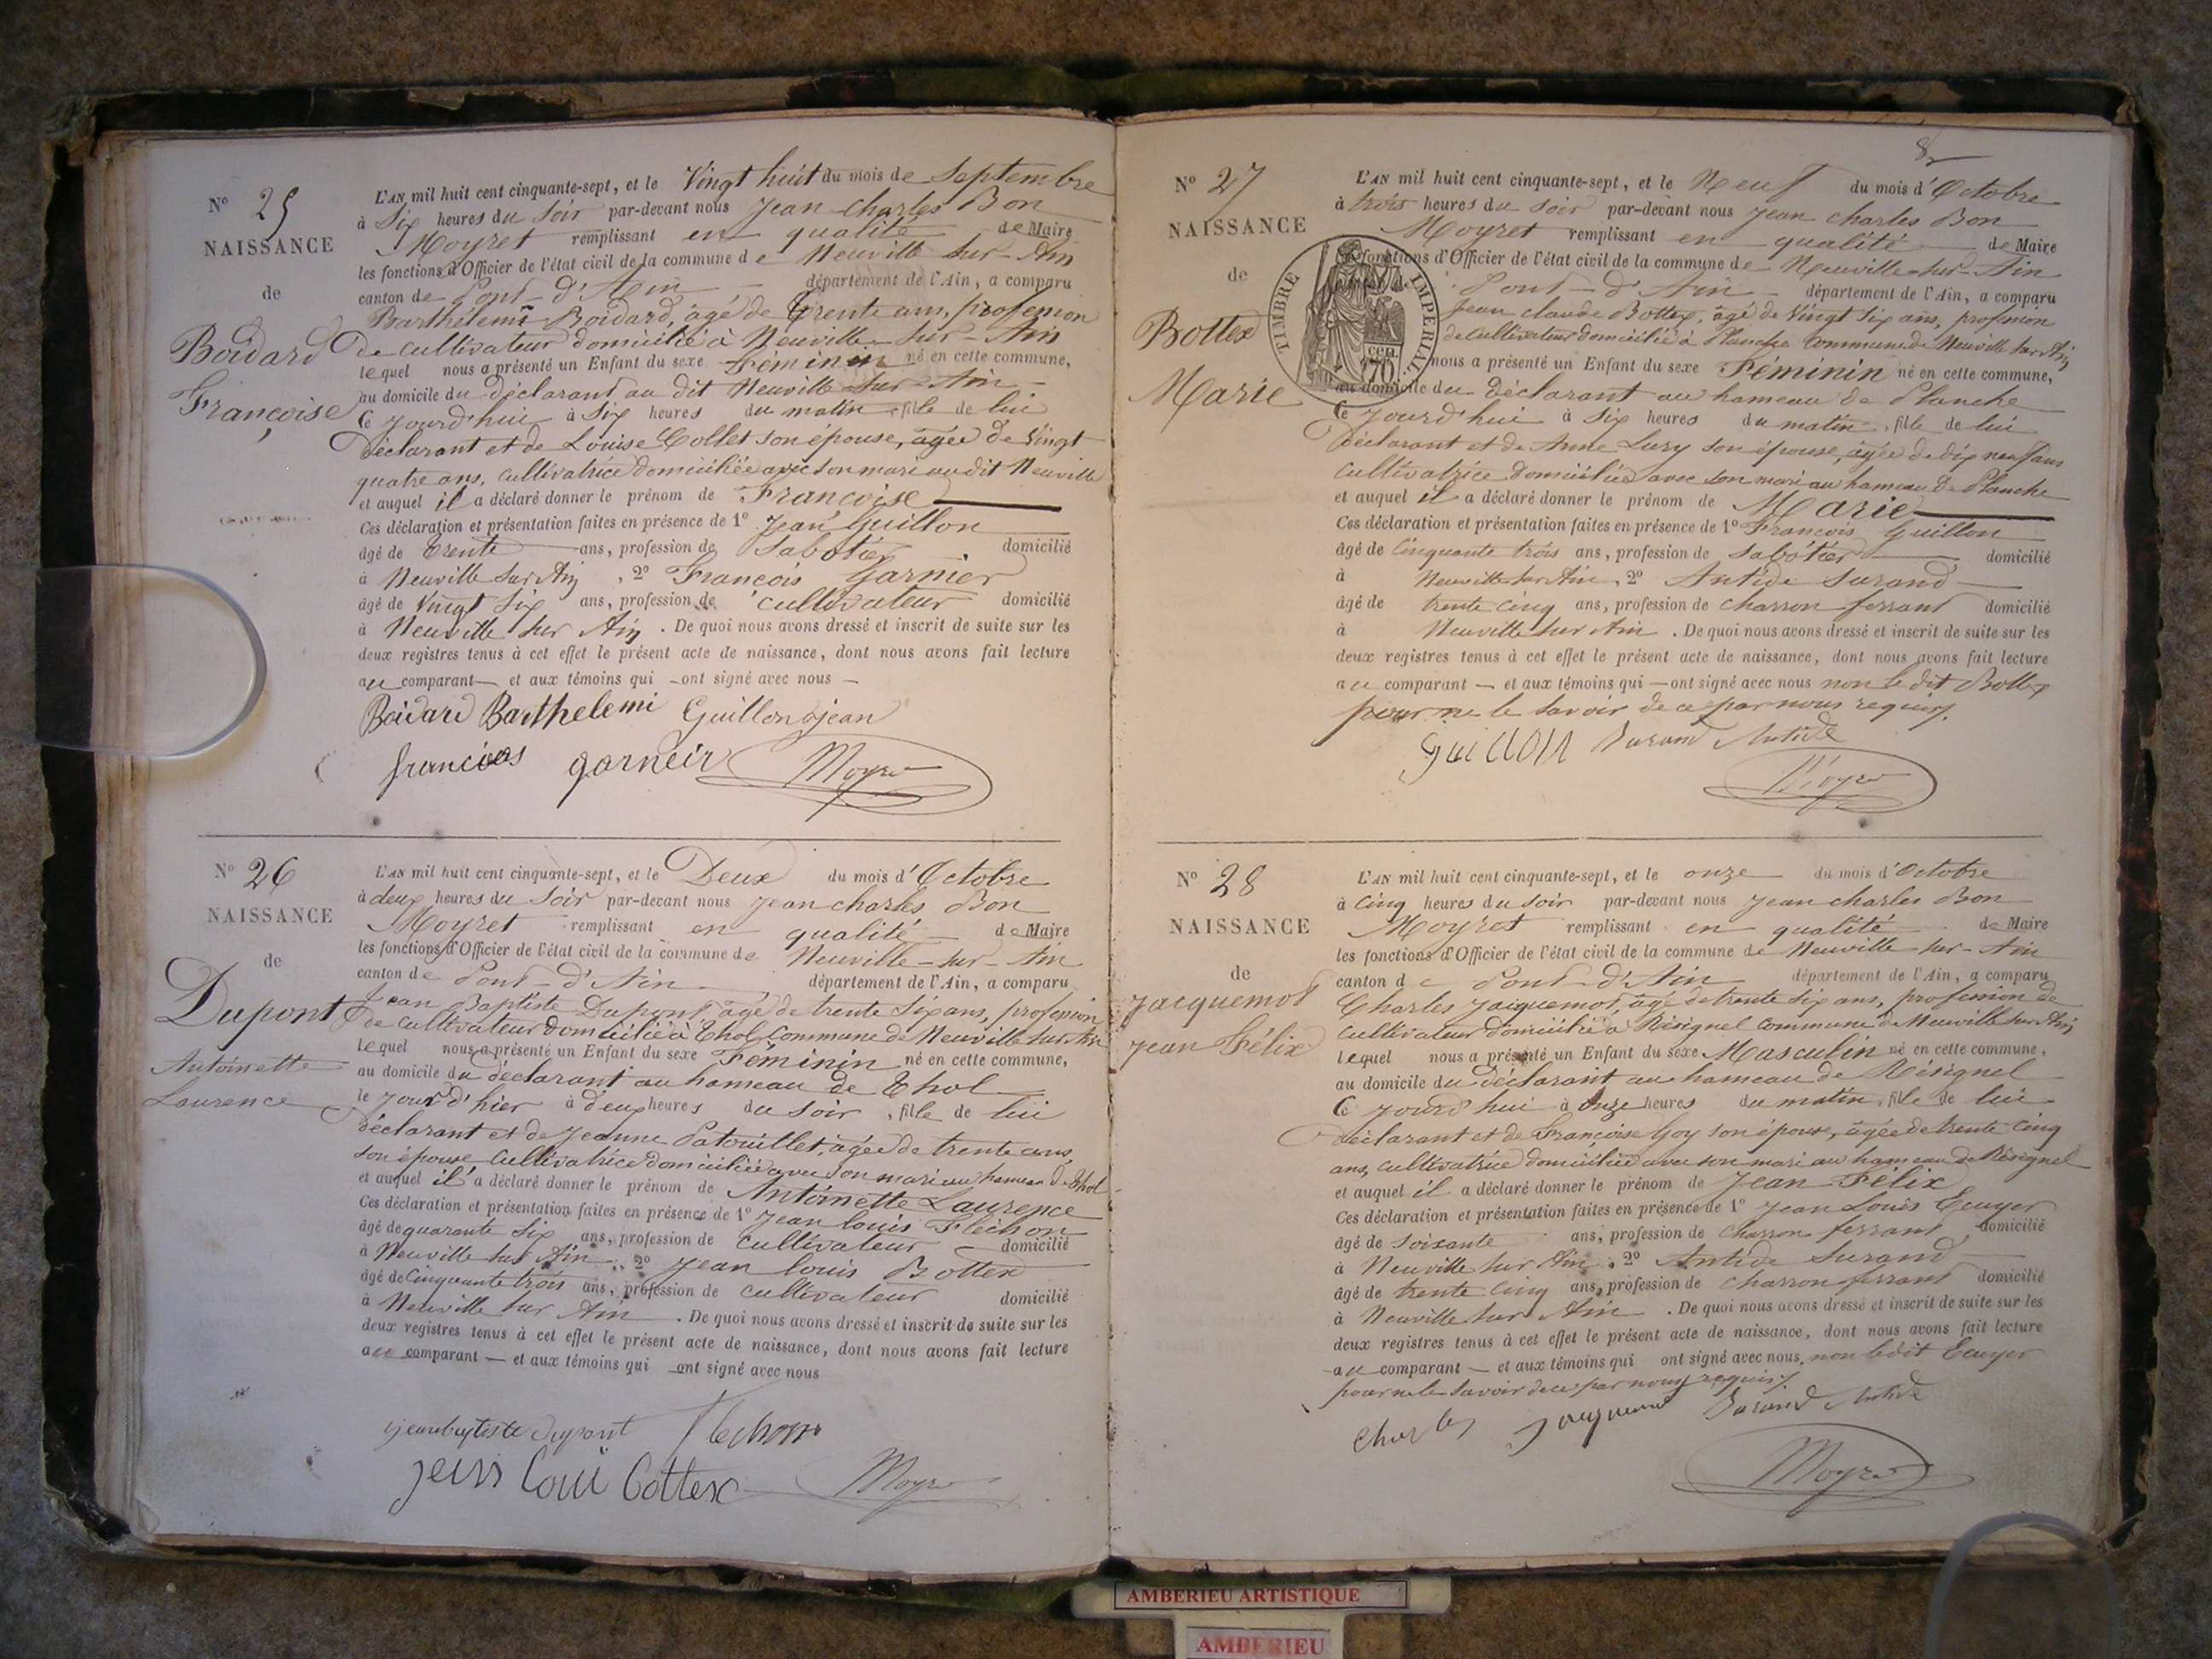 N° 25
NAISSANCE
de
Boidard
Françoise
L'AN mil huit cent cinquante-sept, et le Vingt huit du mois de Septembre
à Six heures du Soir par-devant nous Jean Charles Bon
Moyret remplissant en qualité de Maire
les fonctions d'Officier de l'état civil de la commune de Neuville sur-Ain
canton de Pont-d'Ain département de l'Ain, a comparu
Barthélemi Boidard, âgé de trente ans, profession
de cultivateur domicilié à Neuville-sur-Ain
lequel nous a présenté un Enfant du sexe Féminin né en cette commune,
au domicile du déclarant au dit Neuville-sur-Ain
Ce jourd'hui à Six heures du matin, fille de lui
déclarant et de Louise Collet son épouse, agée de Vingt
quatre ans, cultivatrice domiciliée avec son mari au dit Neuville
et auquel il a déclaré donner le prénom de Françoise
Ces déclaration et présentation faites en présence de 1° Jean Guillon
âgé de trente ans, profession de Sabotier domicilié
à Neuville sur Ain, 2° François Garnier
âgé de Vingt Six ans, profession de cultivateur domicilié
à Neuville sur Ain. De quoi nous avons dressé et inscrit de suite sur les
deux registres tenus à cet effet le présent acte de naissance, dont nous avons fait lecture
au comparant et aux témoins qui ont signé avec nous
Boidard Barthelemi Guillon jean
garneir Moyret
N° 26
NAISSANCE
de
Dupont
Antoinette
Laurence
L'AN mil huit cent cinquante-sept, et le Deux du mois d'Octobre
à deux heures du Soir par-devant nous Jean charles Bon
Moyret remplissant en qualité de Maire
les fonctions d'Officier de l'état civil de la commune de Neuville-sur-Ain
canton de Pont-d'Ain département de l'Ain, a comparu
Jean Baptiste Dupont, âgé de trente Six ans, profession
de cultivateur domicilié à Thol commune de Neuville sur Ain
lequel nous a présenté un Enfant du sexe Féminin né en cette commune,
au domicile du déclarant au hameau de Thol
le jour d'hier à deux heures du soir, fille de lui
déclarant et de Jeanne Patouillet, agée de trente ans,
son épouse cultivatrice domiciliée avec son mari au hameau de Thol
et auquel il a déclaré donner le prénom de Antoinette Laurence
Ces déclaration et présentation faites en présence de 1° Jean Louis Fléchon
âgé de quarante Six ans, profession de cultivateur domicilié
à Neuville sur Ain, 2° Jean Louis Bottex
âgé de Cinquante trois ans, profession de cultivateur domicilié
à Neuville sur Ain. De quoi nous avons dressé et inscrit de suite sur les
deux registres tenus à cet effet le présent acte de naissance, dont nous avons fait lecture
au comparant et aux témoins qui ont signé avec nous
jeanbaptiste dupont flechon
jean loui bottex Moyret
N° 27
NAISSANCE
de
Bottex
Marie
TIMBRE IMPERIAL
cen. 70
L'AN mil huit cent cinquante-sept, et le Neuf du mois d'Octobre
à trois heures du soir par-devant nous Jean charles Bon
Moyret remplissant en qualité de Maire
fonctions d'Officier de l'état civil de la commune de Neuville-sur-Ain
Pont-d'Ain département de l'Ain, a comparu
Jean claude Bottex, âgé de Vingt Six ans, profession
de Cultivateur domicilié à Planche Commune de Neuville sur Ain
nous a présenté un Enfant du sexe Féminin né en cette commune,
au domicile du déclarant au hameau de Planche
Ce jourd'hui à Six heures du matin, fille de lui
déclarant et de Anne Lury son épouse, agée de dix neuf ans
cultivatrice domiciliée avec son mari au hameau de Planche
et auquel il a déclaré donner le prénom de Marie
Ces déclaration et présentation faites en présence de 1° François Guillon
âgé de Cinquante trois ans, profession de Sabotier domicilié
à Neuville sur Ain, 2° Antide Durand
âgé de trente cinq ans, profession de charron ferrant domicilié
à Neuville sur Ain. De quoi nous avons dressé et inscrit de suite sur les
deux registres tenus à cet effet le présent acte de naissance, dont nous avons fait lecture
au comparant et aux témoins qui ont signé avec nous non le dit Bottex
pour ne le savoir de ce par nous requis.
Guillon Durand Antide
Moyret
N° 28
NAISSANCE
de
Jacquemot
Jean Félix
L'AN mil huit cent cinquante-sept, et le onze du mois d'Octobre
à Cinq heures du soir par-devant nous Jean charles Bon
Moyret remplissant en qualité de Maire
les fonctions d'Officier de l'état civil de la commune de Neuville-sur-Ain
canton de Pont-d'Ain département de l'Ain, a comparu
Charles Jacquemot, âgé de trente Six ans, profession de
cultivateur domicilié à Résignel commune de Neuville sur Ain
lequel nous a présenté un Enfant du sexe Masculin né en cette commune,
au domicile du déclarant au hameau de Résignel
Ce jourd'hui à Onze heures du matin, fils de lui
déclarant et de Françoise Goy son épouse, agée de trente Cinq
ans, cultivatrice domiciliée avec son mari au hameau de Résignel
et auquel il a déclaré donner le prénom de Jean Félix
Ces déclaration et présentation faites en présence de 1° Jean Louis Ecuyer
âgé de Soixante ans, profession de charron ferrant, domicilié
à Neuville sur Ain, 2° Antide Durand
âgé de trente cinq ans, profession de charron ferrant domicilié
à Neuville sur Ain. De quoi nous avons dressé et inscrit de suite sur les
deux registres tenus à cet effet le présent acte de naissance, dont nous avons fait lecture
au comparant et aux témoins qui ont signé avec nous, non le dit Ecuyer
pour ne le savoir de ce par nous requis.
Charles Jacquemot Durand Antide
Moyret
AMBERIEU ARTISTIQUE
AMBERIEU